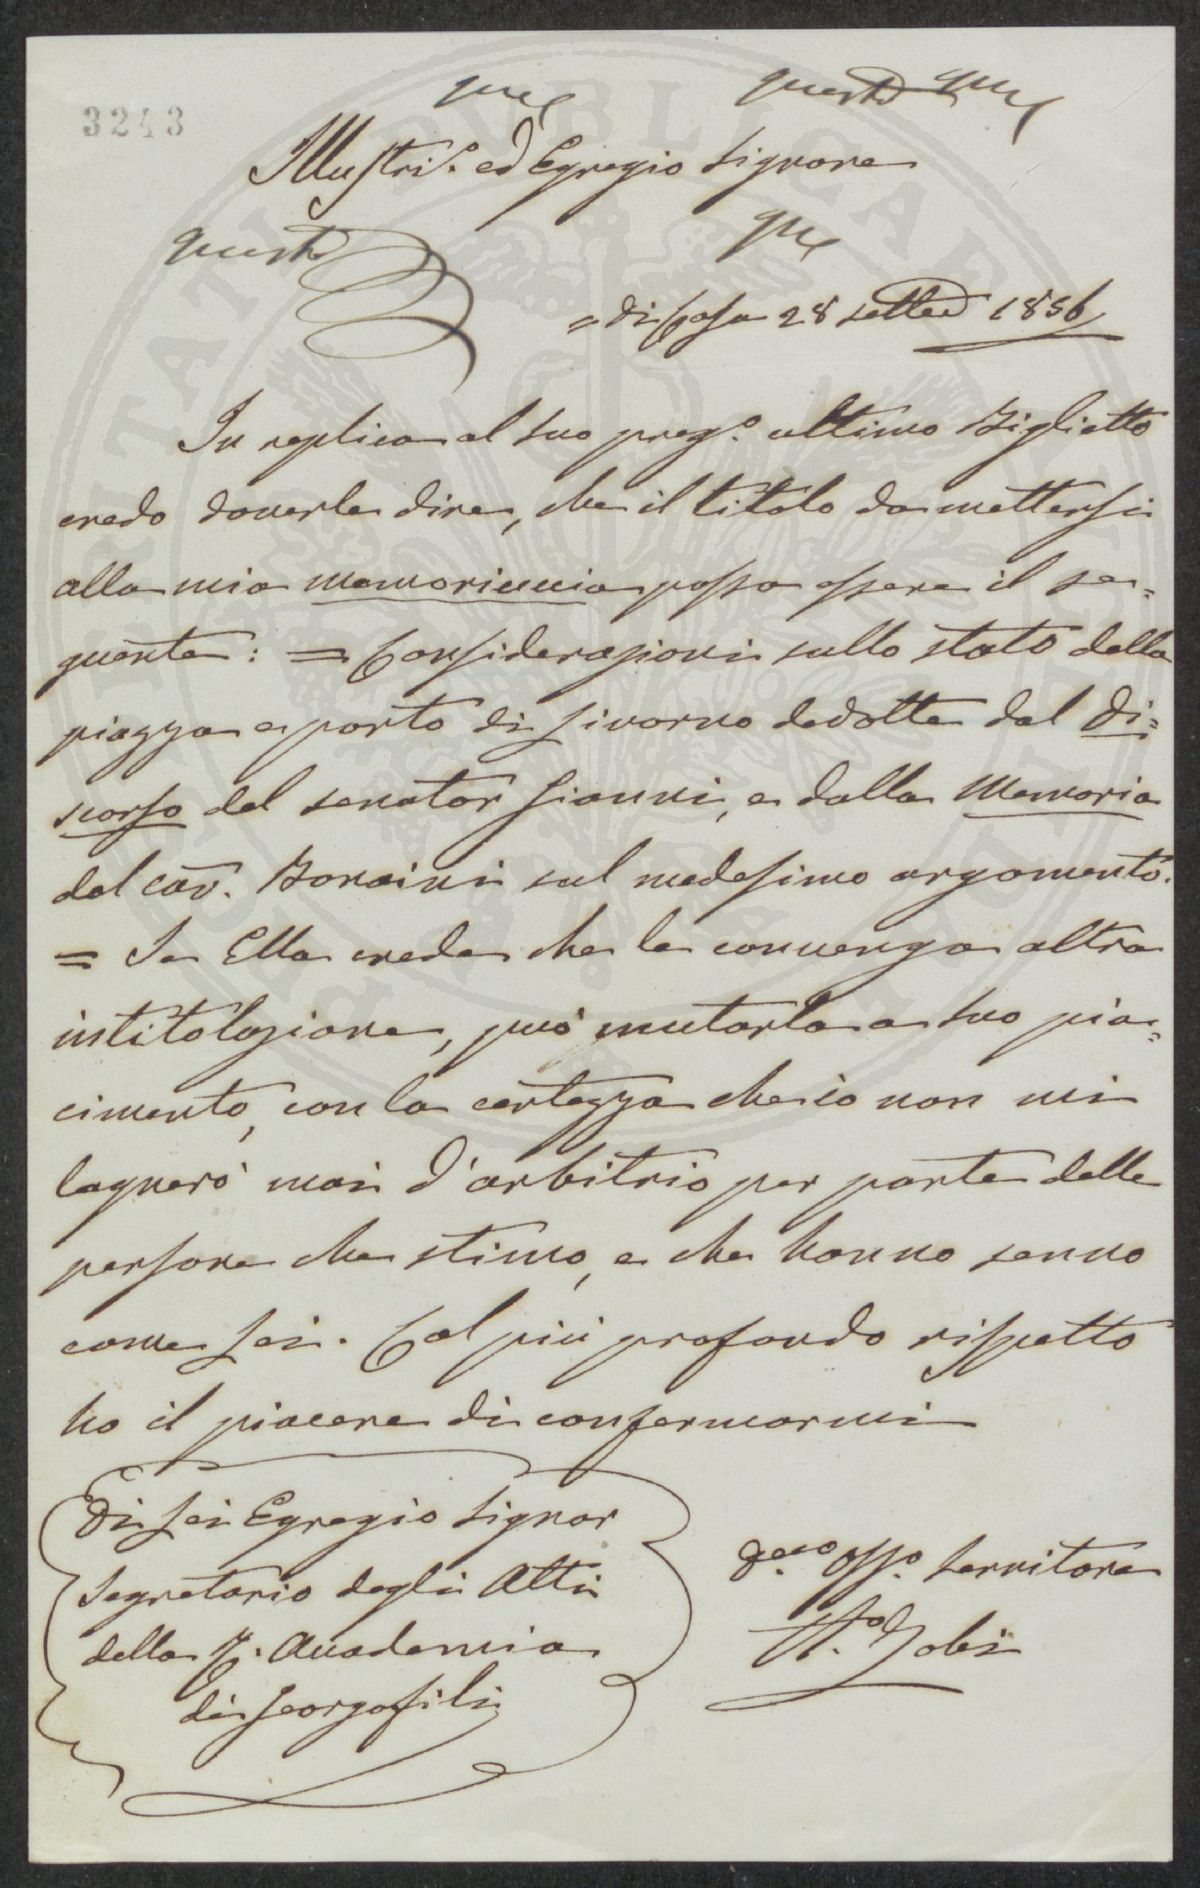 que questo que
3243
Illustri.e ed Egregio Signore
questo que
= di Casa 28 settbre 1856
In replica al suo preg.o ultimo Biglietto
credo doverle dire, che il titolo da mettersi
alla mia memoriuccia possa essere il se=
guente: = Considerazioni sullo stato della
piazza e porto di Livorno dedotte dal Di=
scorso del senator Gianni, e dalla Memoria
del cav. Bonaini sul medesimo argomento.
= Se Ella crede che le convenga altra
intitolazione, può mutarla a suo pia=
cimento, con la certezza che io non mi
lagnerò mai d'arbitrio per parte delle
persone che stimo, e che hanno senno
come Lei. Col più profondo rispetto
ho il piacere di confermarmi
Di Lei Egregio Signor
Segretario degli Atti
della R. Accademia
dei Georgofili
D.mo Oss.o Servitore
A.o Zobi
PUBLICAE